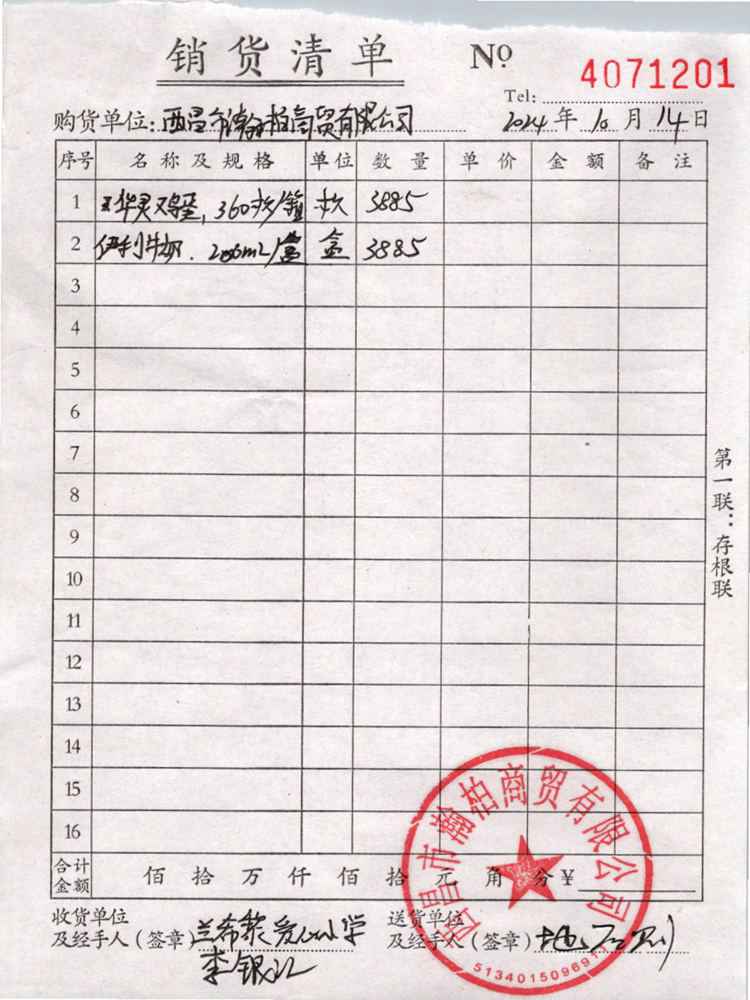 销货清单 №
4071201
Tel:
购货单位: 西昌市瀚柏商贸有限公司 2024年10月14日
序号 名称及规格 单位 数量 单价 金额 备注
1 鸡蛋, 360枚/箱 枚 3885
2 伊利牛奶. 200mL/盒 盒 3885
3
4
5
6
7
8
9
10
11
12
13
14
15
16
合计金额 佰拾万仟佰拾元角分¥
收货单位及经手人(签章) 兰希 爱心小学
李银江
送货单位及经手人(签章)
第一联:存根联
西昌市瀚柏商贸有限公司